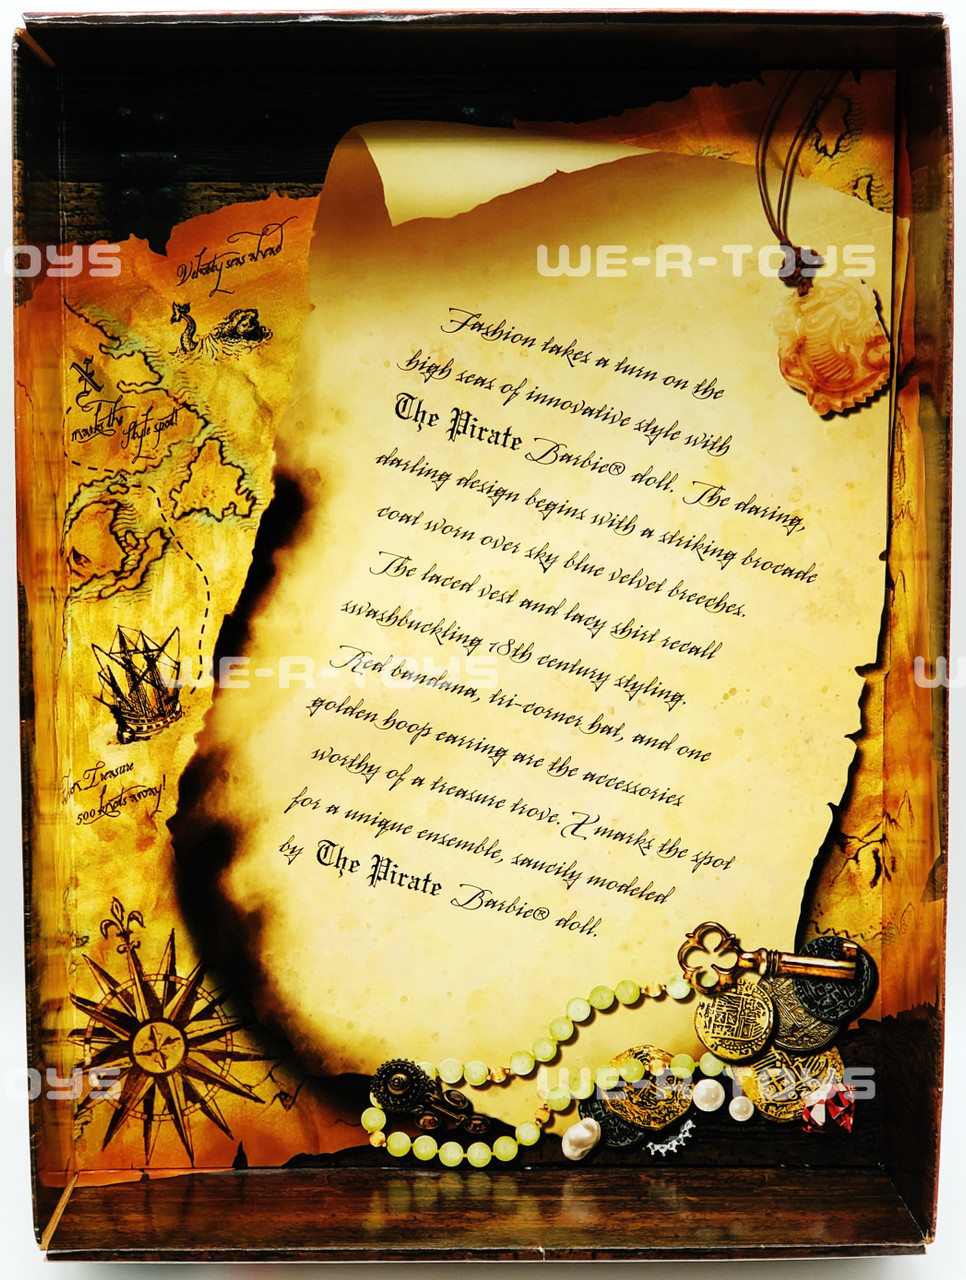 WE-R-TOYS
OYS
Velvety seas ahead
Fashion takes a turn on the
high seas of innovative style with
The Pirate Barbie® doll. The daring,
darling design begins with a striking brocade
coat worn over sky blue velvet breeches.
The laced vest and lacy shirt recall
swashbuckling 18th century styling.
Red bandana, tri-corner hat, and one
golden hoop earring are the accessories
worthy of a treasure trove. X marks the spot
for a unique ensemble, saucily modeled
by The Pirate Barbie® doll.
X
marks the Style spot!
WE-R-TOYS
W
Treasure
500 knots away!
OYS
WE-R-TOYS